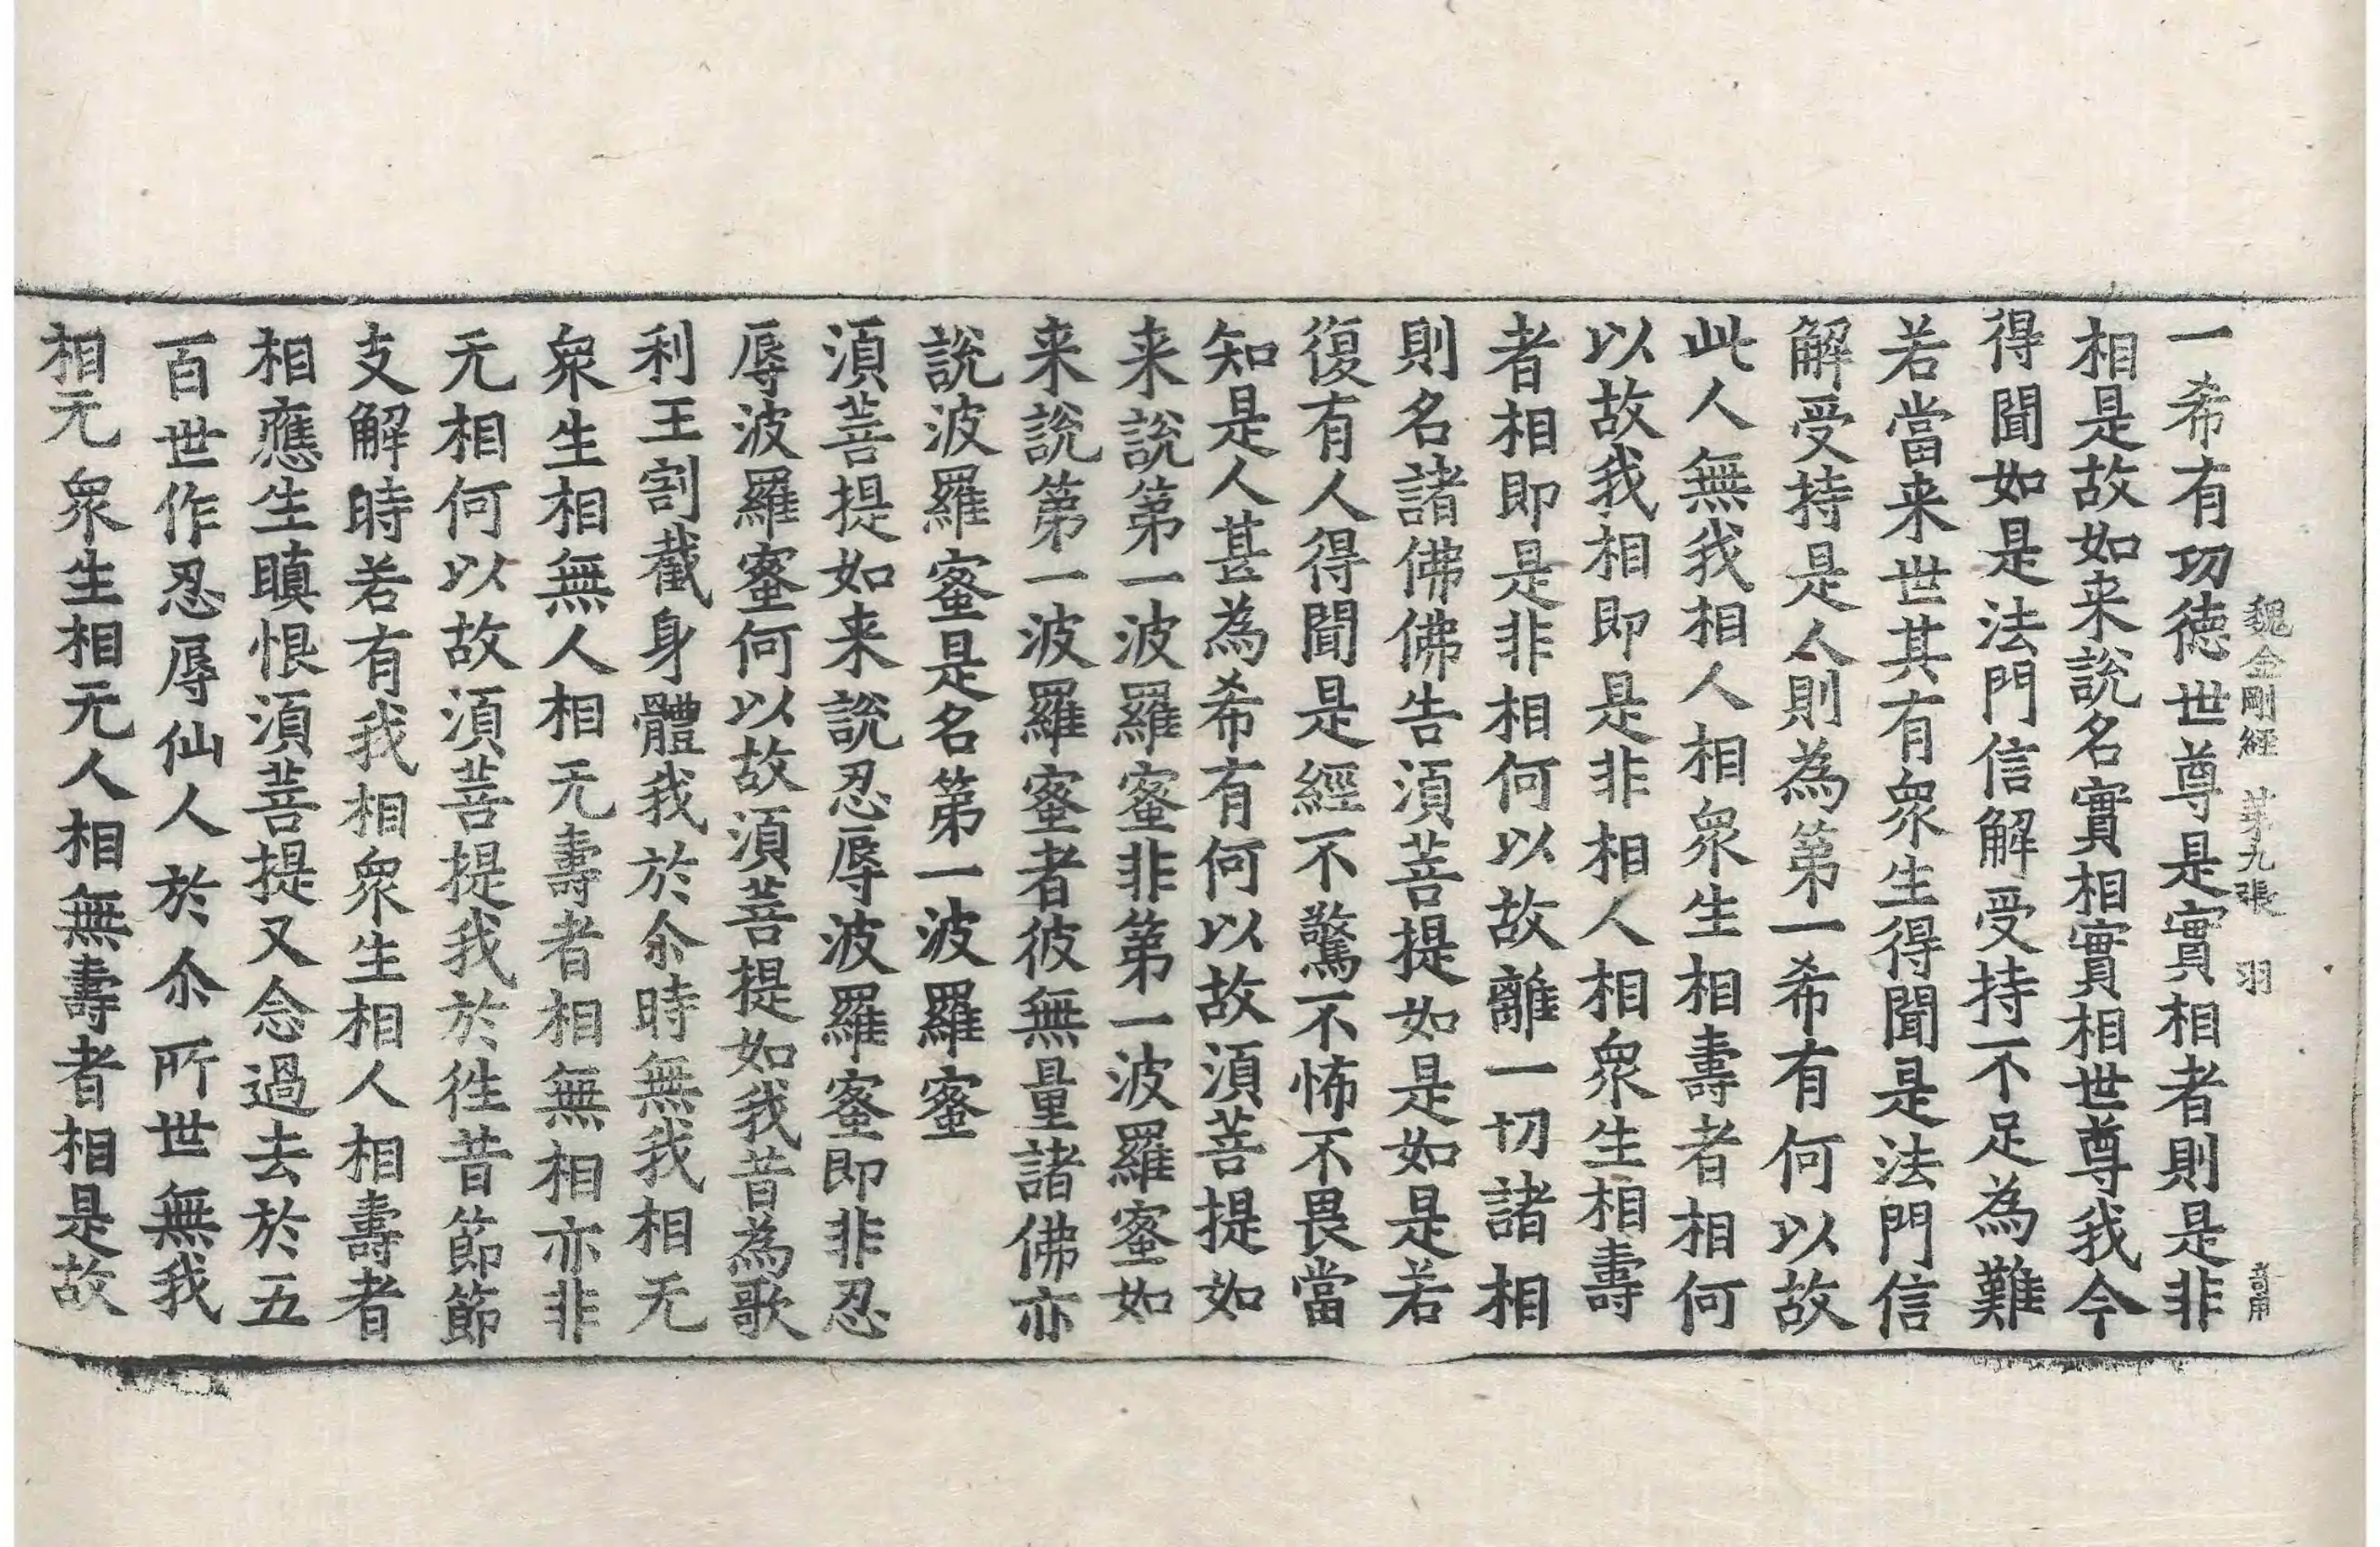 魏金剛經 第九張 羽
一希有功德世尊是實相者則是非
相是故如来說名實相實相世尊我今
得聞如是法門信解受持不足為難
若當来世其有衆生得聞是法門信
解受持是人則為第一希有何以故
此人無我相人相衆生相壽者相何
以故我相即是非相人相衆生相壽
者相即是非相何以故離一切諸相
則名諸佛佛告湏菩提如是如是若
復有人得聞是經不驚不怖不畏當
知是人甚為希有何以故湏菩提如
来說第一波羅蜜非第一波羅蜜如
来說第一波羅蜜者彼無量諸佛亦
說波羅蜜是名第一波羅蜜
湏菩提如来說忍辱波羅蜜即非忍
辱波羅蜜何以故湏菩提如我昔為歌
利王割截身體我於尒時無我相无
衆生相無人相无壽者相無相亦非
无相何以故湏菩提我於徃昔節節
支解時若有我相衆生相人相壽者
相應生瞋恨湏菩提又念過去於五
百世作忍辱仙人於尒所世無我
相无衆生相无人相無壽者相是故